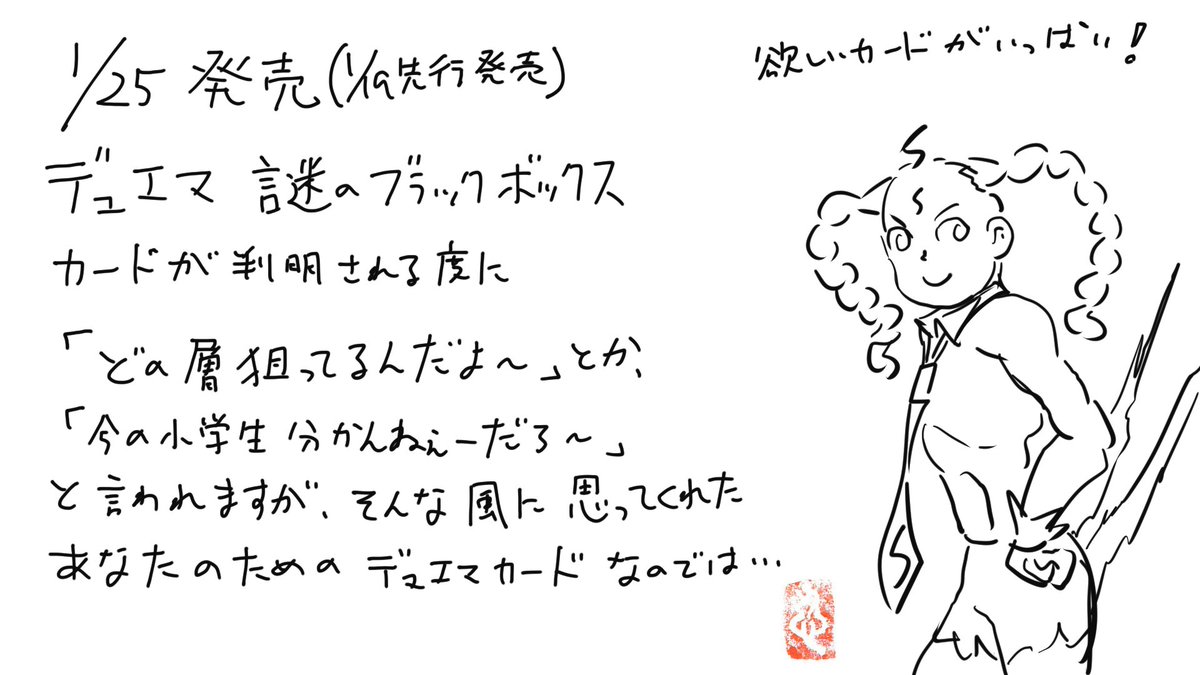 1/25 発売(1/19先行発売)
デュエマ 謎のブラックボックス
カードが判明される度に
「どの層狙ってるんだよ〜」とか、
「今の小学生分かんねぇーだろ〜」
と言われますが、そんな風に思ってくれた
あなたのためのデュエマカードなのでは…
欲しいカードがいっぱい!